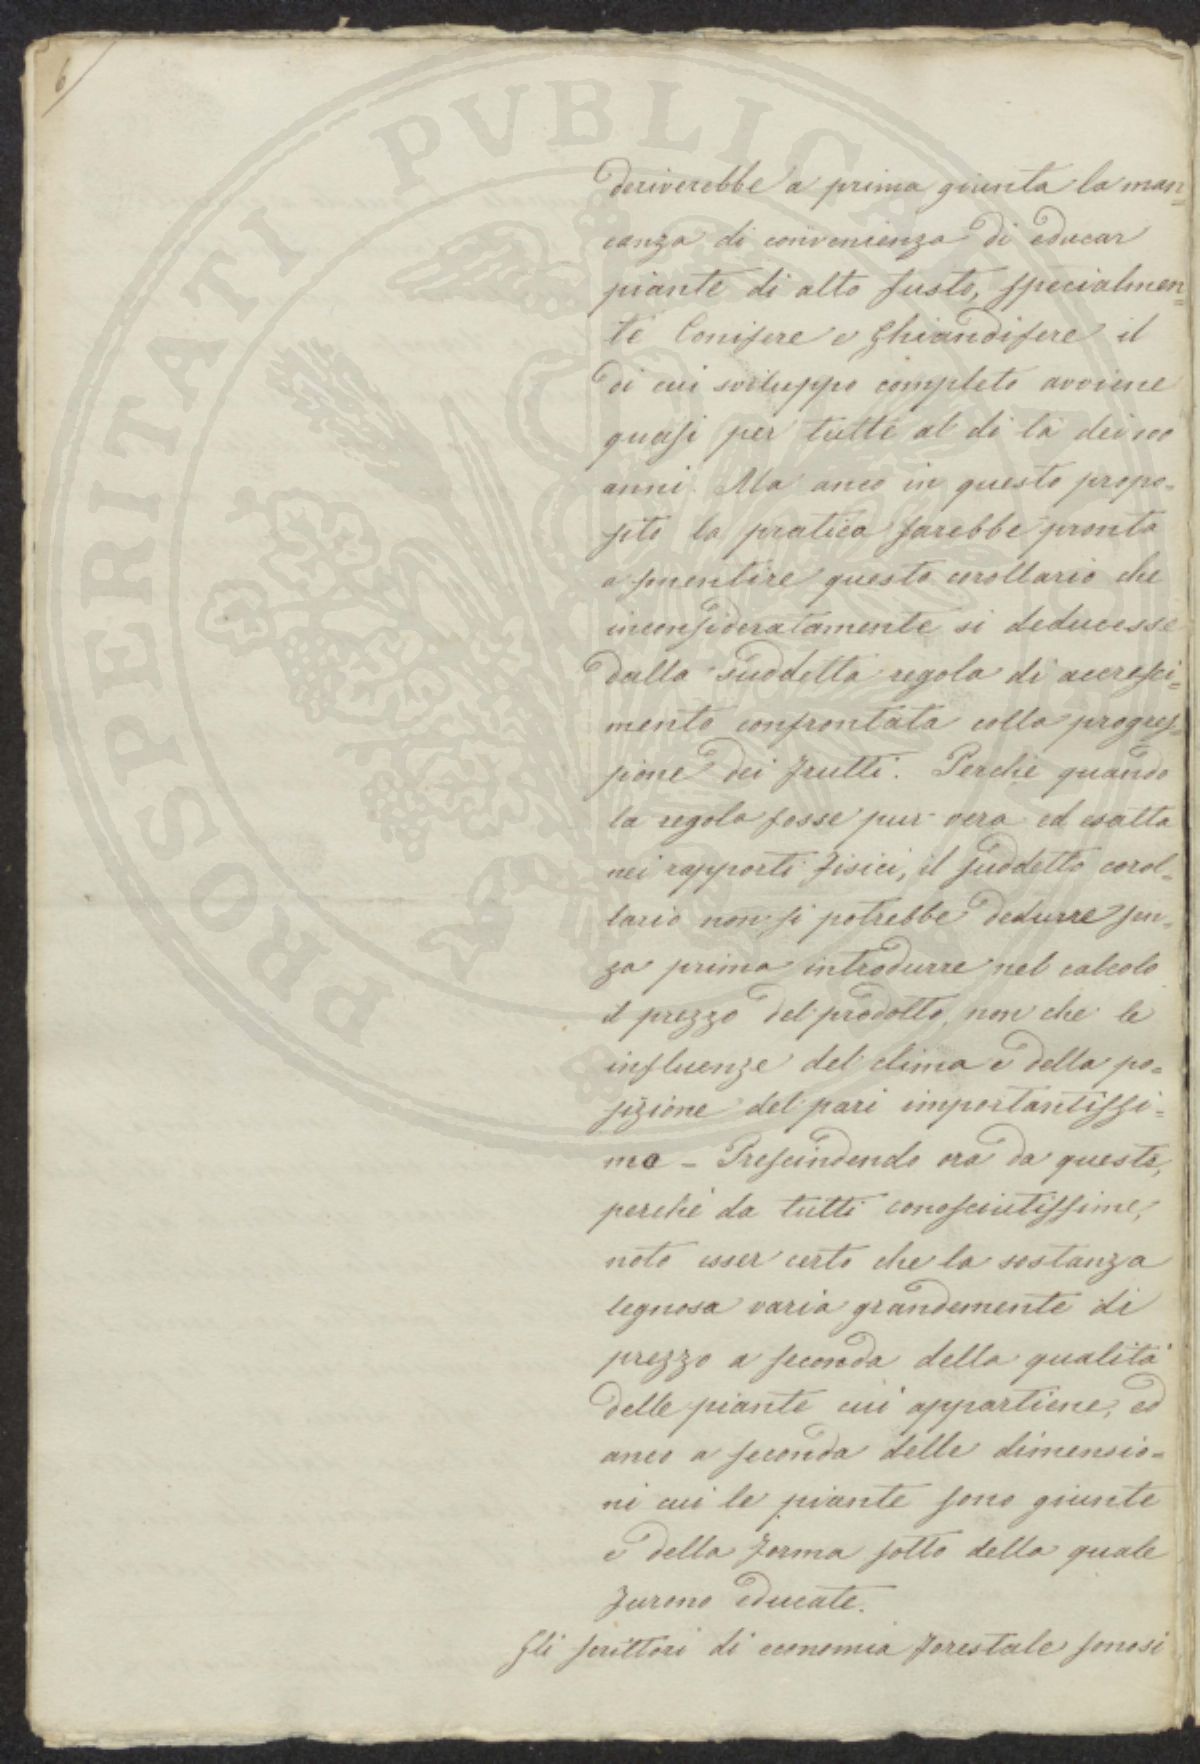 6
deriverebbe a prima giunta la man=
canza di convenienza di educar
piante di alto fusto, specialmen=
te Conifere e Ghiandifere il
di cui sviluppo completo avviene
quasi per tutte al di là dei 100
anni. Ma anco in questo propo=
sito la pratica sarebbe pronta
a smentire questo corollario che
inconsideratamente si deducesse
dalla suddetta regola di accresci=
mento confrontata colla progres=
sione dei frutti. Perchè quando
la regola fosse pur vera ed esatta
nei rapporti fisici, il suddetto corol=
lario non si potrebbe dedurre sen=
za prima introdurre nel calcolo
il prezzo del prodotto, non che le
influenze del clima e della po=
sizione del pari importantissi=
me – Prescindendo ora da queste,
perchè da tutti conosciutissime,
noto esser certo che la sostanza
legnosa varia grandemente di
prezzo a seconda della qualità
delle piante cui appartiene, ed
anco a seconda delle dimensio=
ni cui le piante sono giunte
e della forma sotto della quale
furono educate.
Gli scrittori di economia forestale sonosi
PROSPERITATI PVBLICAE